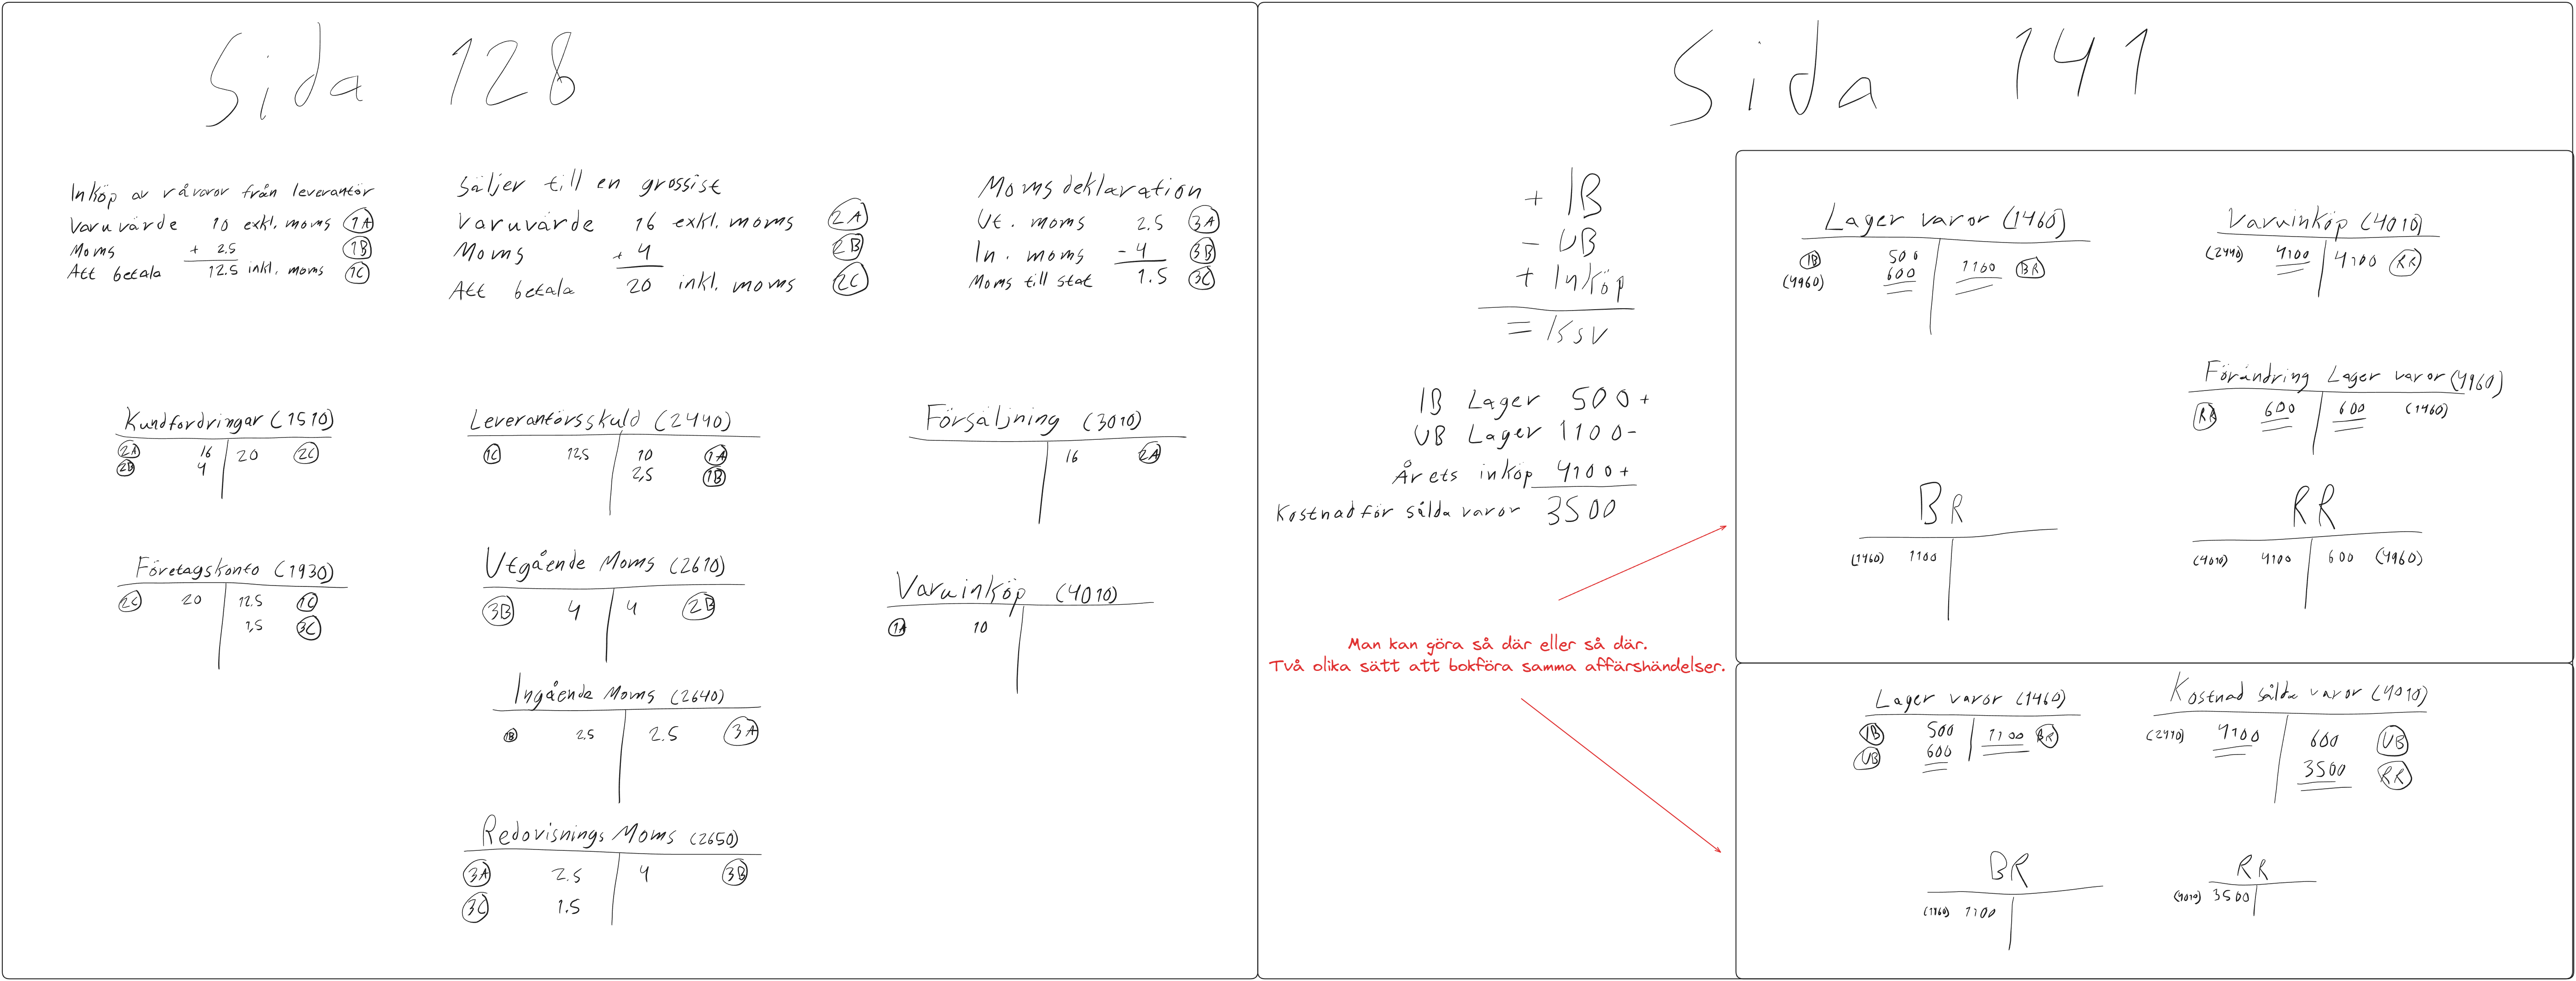 Sida 128
Inköp av råvaror från leverantör
Varuvärde 10 exkl. moms 1A
Moms + 2.5 1B
Att betala 12.5 inkl. moms 1C
Säljer till en grossist
Varuvärde 16 exkl. moms 2A
Moms + 4 2B
Att betala 20 inkl. moms 2C
Moms deklaration
Ut. moms 2.5 3A
In. moms - 4 3B
Moms till stat 1.5 3C
Kundfordringar (1510)
2A 16 20 2C
2B 4
Leverantörsskuld (2440)
1C 12,5 10 1A
2,5 1B
Försäljning (3010)
16 2A
Företagskonto (1930)
2C 20 12.5 1C
1,5 3C
Utgående Moms (2610)
3B 4 4 2B
Varuinköp (4010)
1A 10
Ingående Moms (2640)
1B 2.5 2.5 3A
Redovisnings Moms (2650)
3A 2.5 4 3B
3C 1.5
Sida 141
+ IB
- UB
+ Inköp
= KSV
IB Lager 500+
UB Lager 1100-
Årets inköp 4100+
Kostnad för sålda varor 3500
Man kan göra så där eller så där.
Två olika sätt att bokföra samma affärshändelser.
Lager varor (1460)
IB 500 1100 BR
(4960) 600
Varuinköp (4010)
(2440) 4100 4100 RR
Förändring Lager varor (4960)
RR 600 600 (1460)
BR
(1460) 1100
RR
(4010) 4100 600 (4960)
Lager varor (1460)
IB 500 1100 BR
UB 600
Kostnad sålda varor (4010)
(2440) 4100 600 UB
3500 RR
BR
(1460) 1100
RR
(4010) 3500